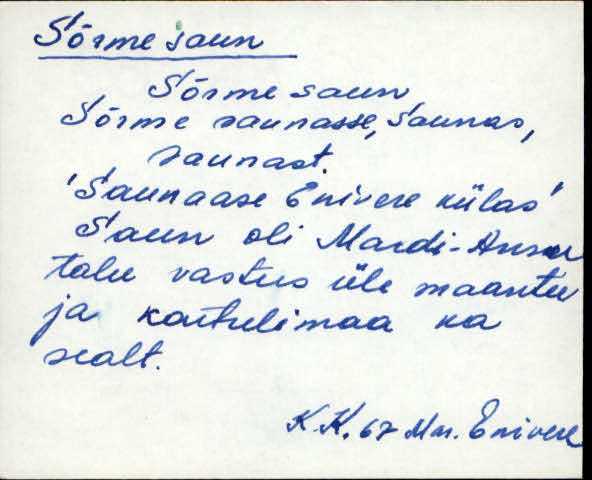 Sõrme saun
Sõrme saun
Sõrme saunasse, saunas,
saunast.
'Saunaase Enivere külas'
Saun oli Mardi-Ansu
talu vastus üle maantee
ja kartulimaa ka
sealt.
K.K. 67 Mar. Enivere